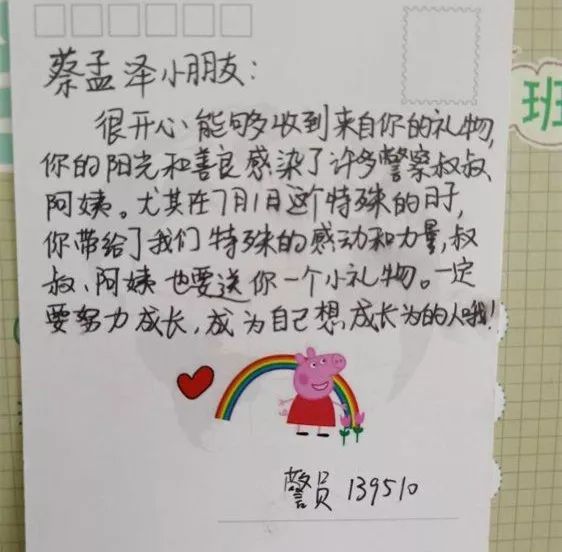 蔡孟泽小朋友：
很开心能够收到来自你的礼物,
你的阳光和善良感染了许多警察叔叔、
阿姨。尤其在7月1日这个特殊的日子,
你带给了我们特殊的感动和力量,叔
叔、阿姨也要送你一个小礼物。一定
要努力成长,成为自己想成长为的人哦!
警员 139510
班